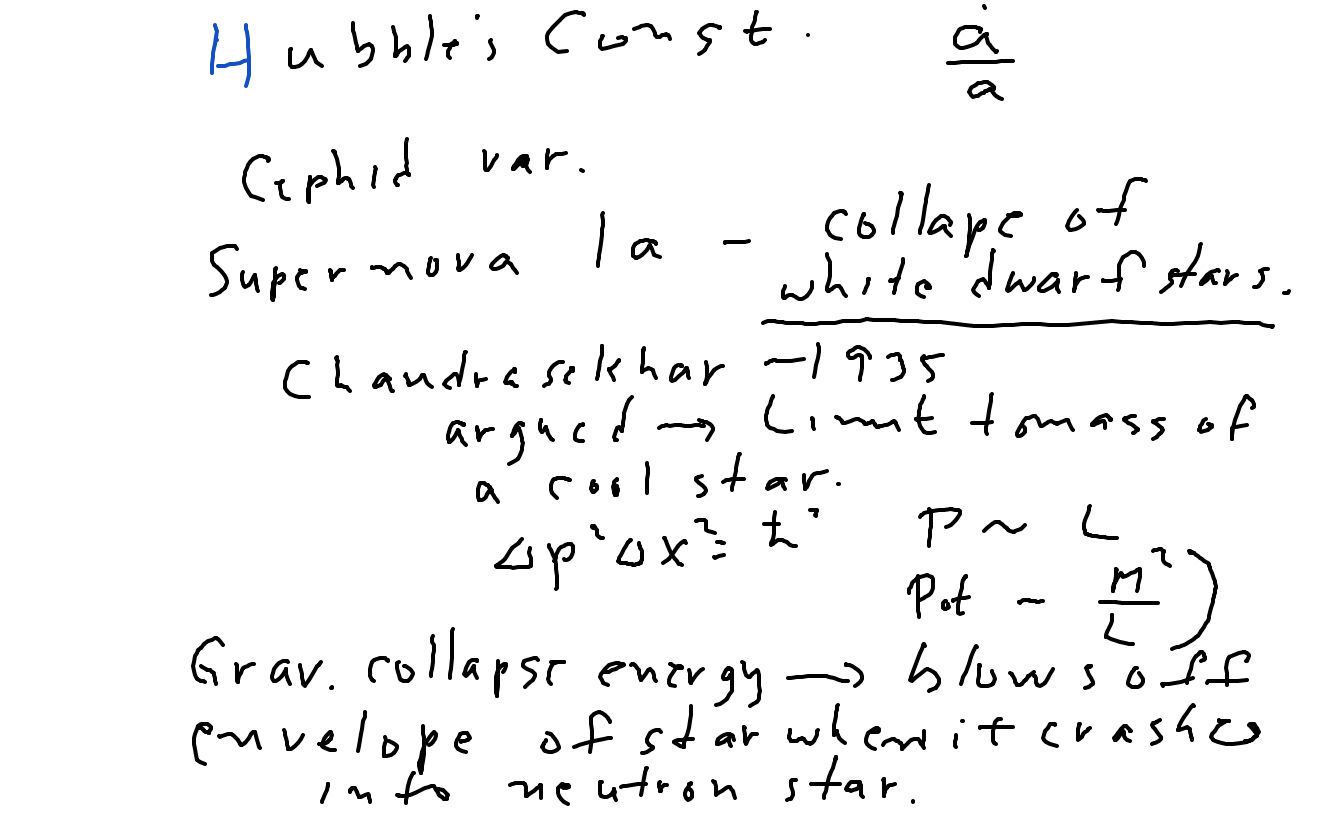 Hubble's Const. ȧ/a
Cephid var.
Supernova 1a - collape of
white dwarf stars.
Chandrasekhar -1935
argued → Limit to mass of
a cool star.
Δp²Δx² = ħ² P ~ L
Pot ~ M²/L)
Grav. collapse energy → blows off
envelope of star when it crashes
into neutron star.